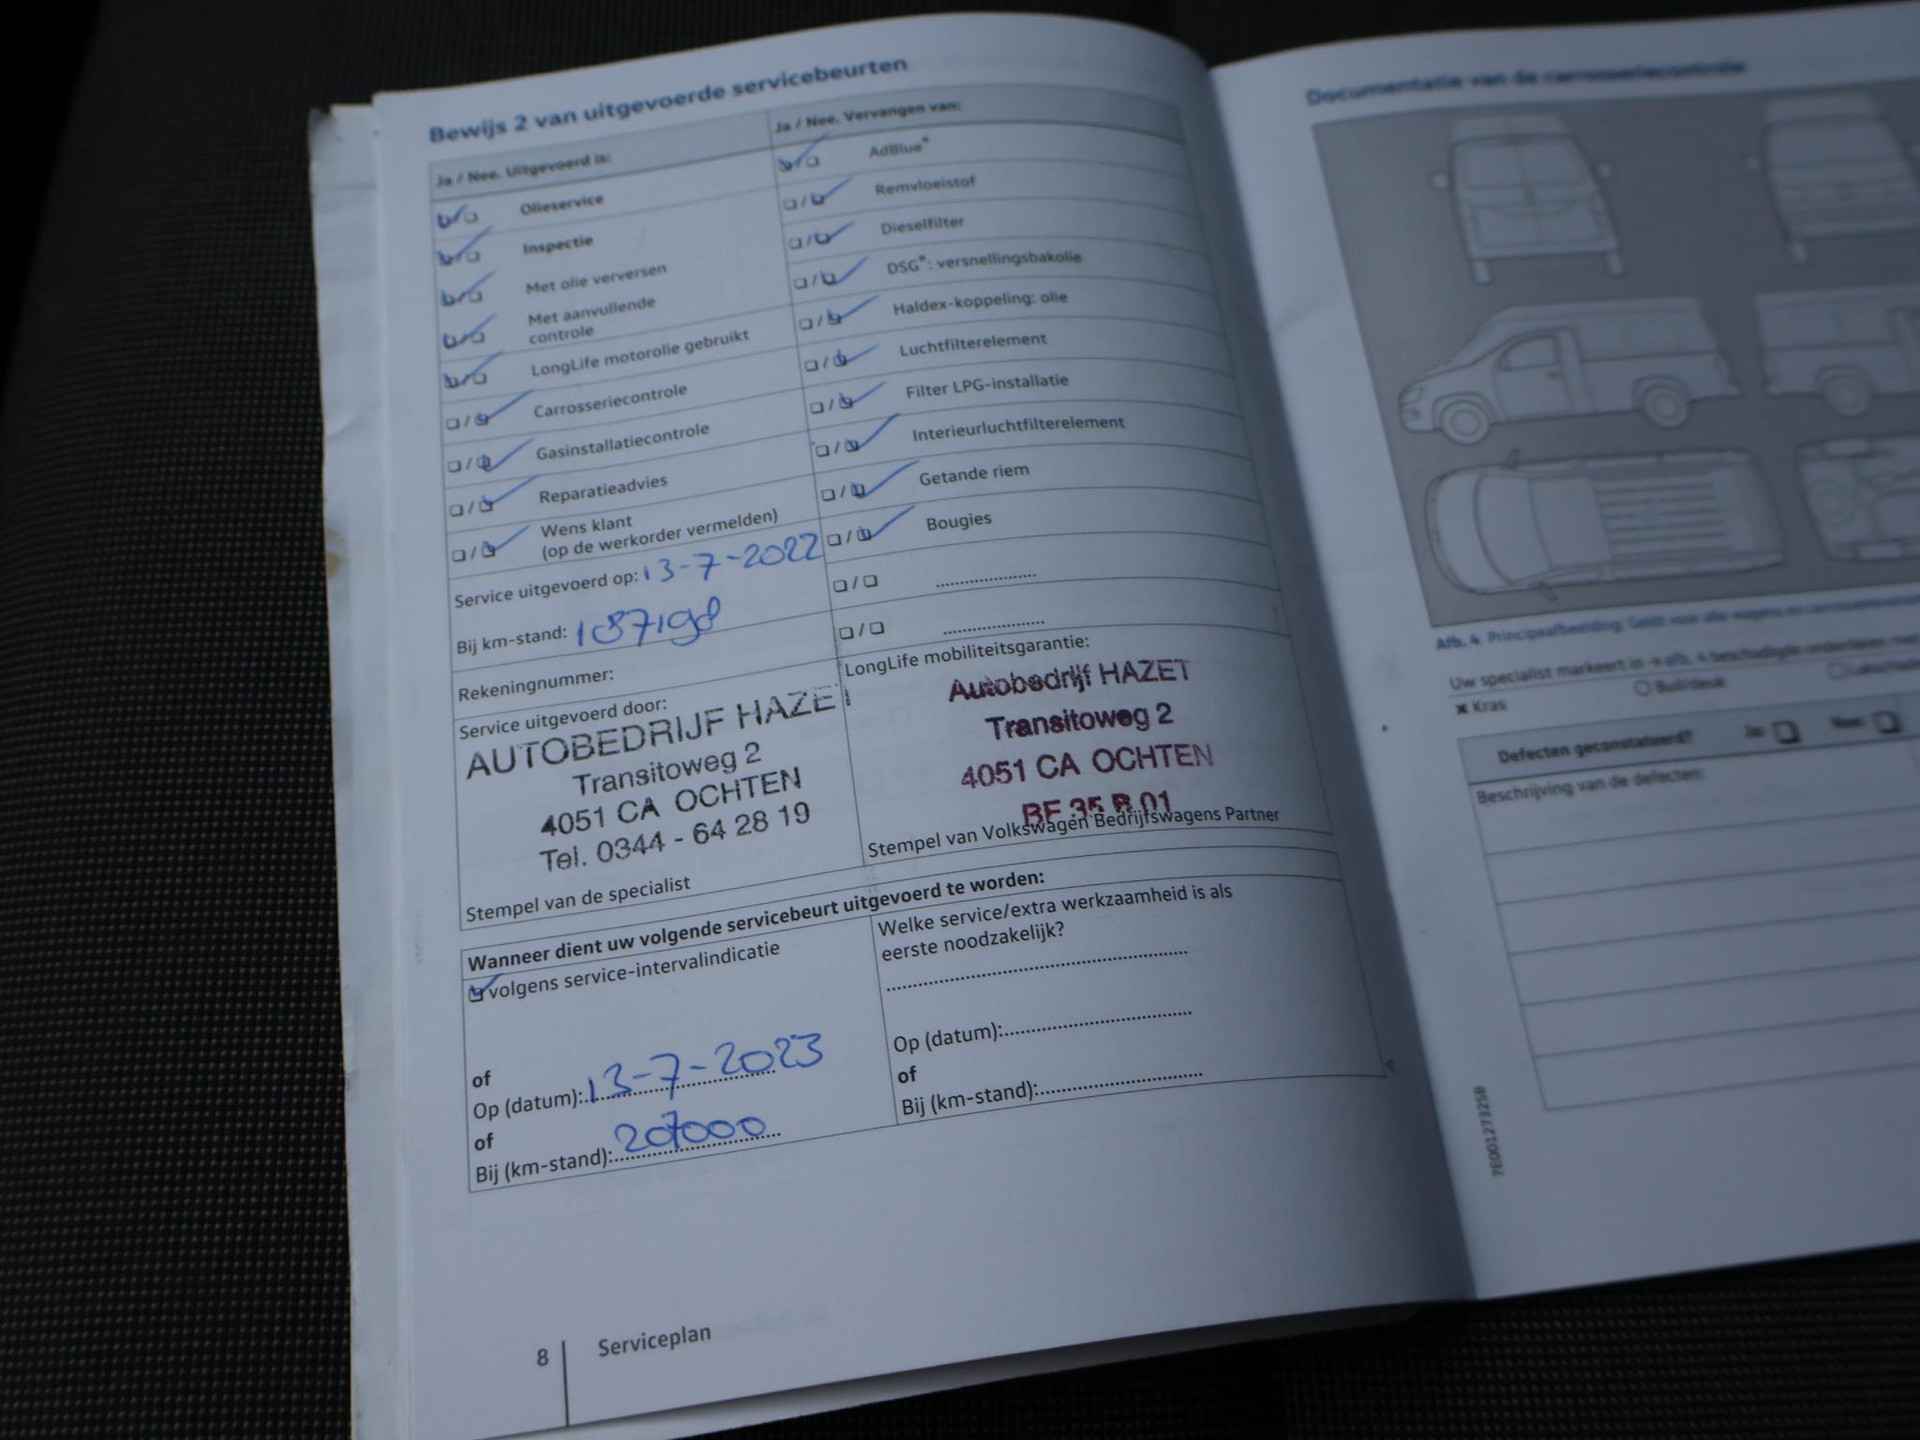 Bewijs 2 van uitgevoerde servicebeurten
Ja / Nee. Uitgevoerd is:
Olieservice
Inspectie
Met olie verversen
Met aanvullende
controle
LongLife motorolie gebruikt
Carrosseriecontrole
Gasinstallatiecontrole
Reparatieadvies
Wens klant
(op de werkorder vermelden)
Service uitgevoerd op: 13-7-2022
Bij km-stand: 187198
Rekeningnummer:
Service uitgevoerd door:
AUTOBEDRIJF HAZET
Transitoweg 2
4051 CA OCHTEN
Tel. 0344 - 64 28 19
Stempel van de specialist
Ja / Nee. Vervangen van:
AdBlue®
Remvloeistof
Dieselfilter
DSG®: versnellingsbakolie
Haldex-koppeling: olie
Luchtfilterelement
Filter LPG-installatie
Interieurluchtfilterelement
Getande riem
Bougies
LongLife mobiliteitsgarantie:
Autobedrijf HAZET
Transitoweg 2
4051 CA OCHTEN
BE 35 R 01
Stempel van Volkswagen Bedrijfswagens Partner
Wanneer dient uw volgende servicebeurt uitgevoerd te worden:
volgens service-intervalindicatie
of
Op (datum): 13-7-2023
of
Bij (km-stand): 207000
Welke service/extra werkzaamheid is als
eerste noodzakelijk?
Op (datum):
of
Bij (km-stand):
8 Serviceplan
Documentatie van de carrosseriecontrole
Afb. 4 Principeafbeelding: Geldt voor alle
Uw specialist markeert in → afb. 4 beschadigde onderdelen met
Kras
Buil/deuk
Defecten geconstateerd? Ja: Nee:
Beschrijving van de defecten:
7E0012732SB